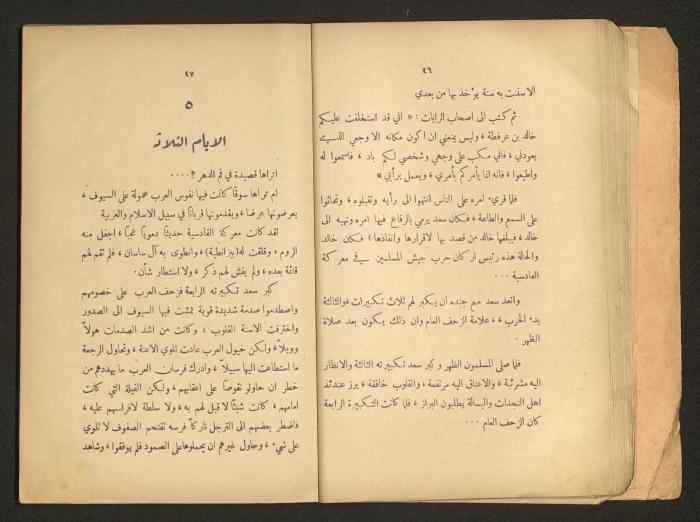 ٤٦
الا سننت به سنة يؤخذ بها من بعدي
ثم كتب الى اصحاب الرايات : « اني قد استخلفت عليكم
خالد بن عرفطة ، وليس يمنعني ان اكون مكانه الا وجعي الذي
يعودني ، فاني مكب على وجهي وشخصي لكم باد ، فاسمعوا له
واطيعوا ، فانه انما يأمركم بأمري ، ويعمل برأيي »
فلما قريء امره على الناس انتهوا الى رأيه وتقبلوه ، وتحاثوا
على السمع والطاعة ، فكان سعد يرمي بالرقاع فيها امره ونهيه الى
خالد ، فيبلغها خالد من قصد بها لاقرارها وانفاذها ؛ فكان خالد
والحالة هذه رئيس اركان حرب جيش المسلمين في معركة
القادسية ...
واتعد سعد مع جنده ان يكبر لهم ثلاث تكبيرات ، والثالثة
بدء الحرب ، ، علامة الزحف العام وان ذلك يكون بعد صلاة
الظهر .
فلما صلى المسلمون الظهر وكبر سعد تكبيرته الثالثة والانظار
اليه مشرئبة ، والاعناق اليه مرتفعة ، والقلوب خافقة ، برز عندئذ
اهل النجدات والبسالة يطلبون البراز ، فلما كانت التكبيرة الرابعة
كان الزحف العام ...
٤٧
٥
الايام الثلاثة
اتراها قصيدة في فم الدهر ؟....
ام تراها سوقاً كانت فيها نفوس العرب محمولة على السيوف ،
يعرضونها عرضا ، ويقدمونها قرباناً في سبيل الاسلام والعربية
لقد كانت معركة القادسية حديثاً دموياً عجباً ، اجفل منه
الروم ، وقلقت له (بيزانطية) ، وانطوى به آل ساسان ، فلم تقم لهم
قائمة بعده ، ولم يفش لهم ذكر ، ولا استطار شأن .
كبر سعد تكبيرته الرابعة فزحف العرب على خصومهم
واصطدموا صدمة شديدة قوية تمشت فيها السيوف الى الصدور
واخترقت الاسنة القلوب ، وكانت من اشد الصدمات هولاً
وويلاً ، ولكن خيول العرب عادت تلوي الاعنة ، وتحاول الرجعة
ما استطاعت اليها سبيلاً ، وادرك فرسان العرب ما يهددهم من
خطر ان حاولو نقوصاً على اعقابهم ، ولكن الفيلة التي كانت
امامهم ، كانت شيئاً لا قبل لهم به ، ولا سلطة لافراسهم عليه ،
فاضطر بعضهم الى الترجل تاركاً فرسه تقتحم الصفوف لا تلوي
على شيء ، وحاول غيرهم ان يحملوها على الصمود فلم يوفقوا ، وشاهد